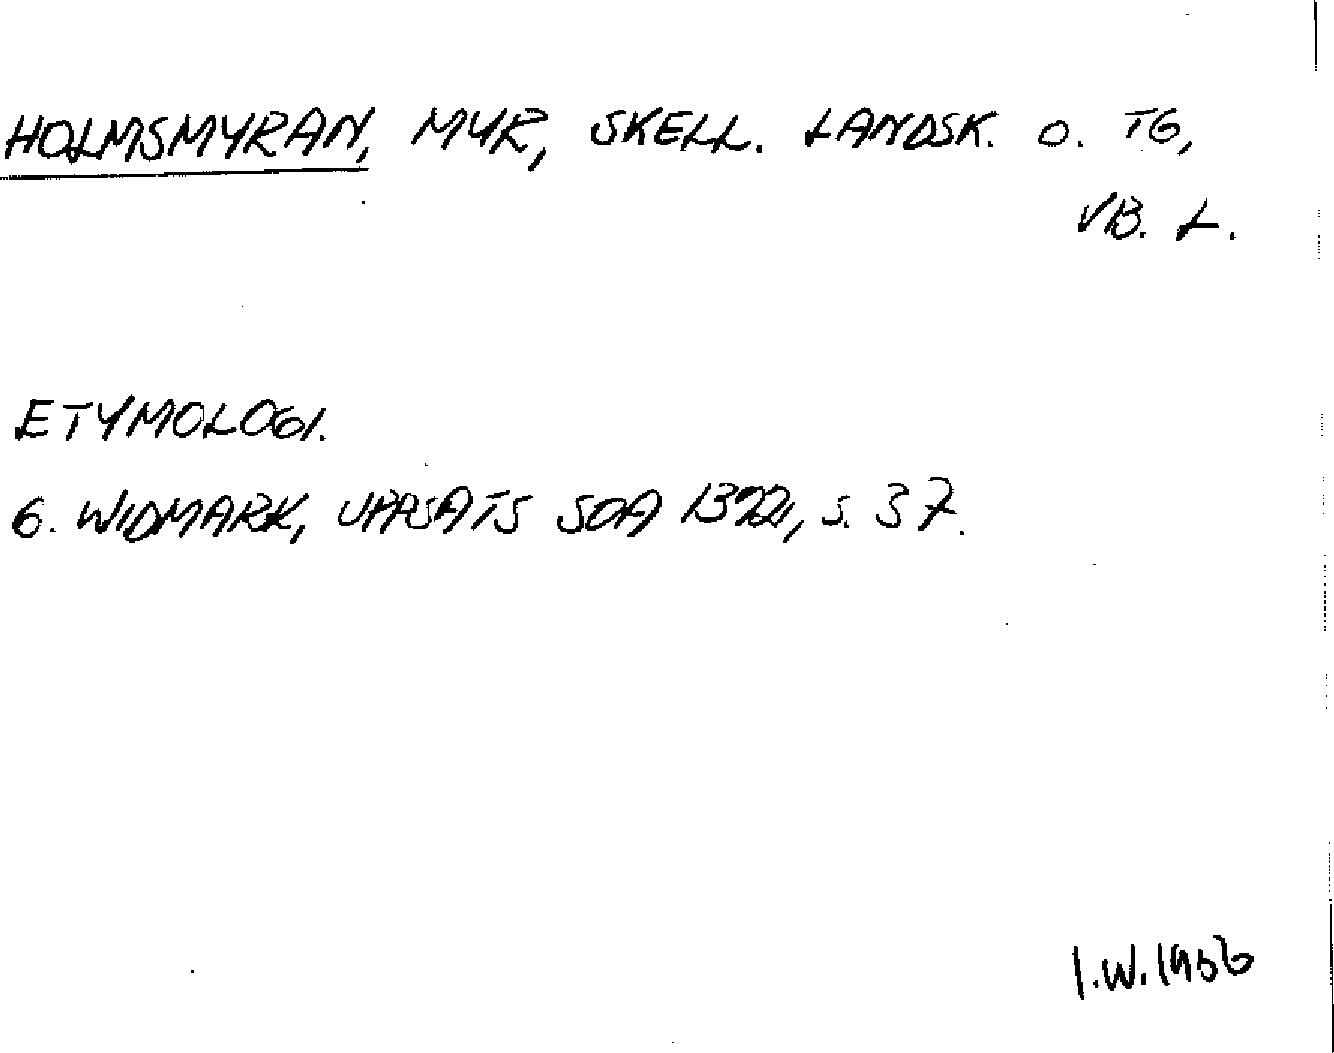 HOLMSMYRAN, MYR, SKELL. LANDSK. O. TG,
VB. L.
ETYMOLOGI.
G. WIDMARK, UPPSATS SOA, s. 37.
I.W. 1956